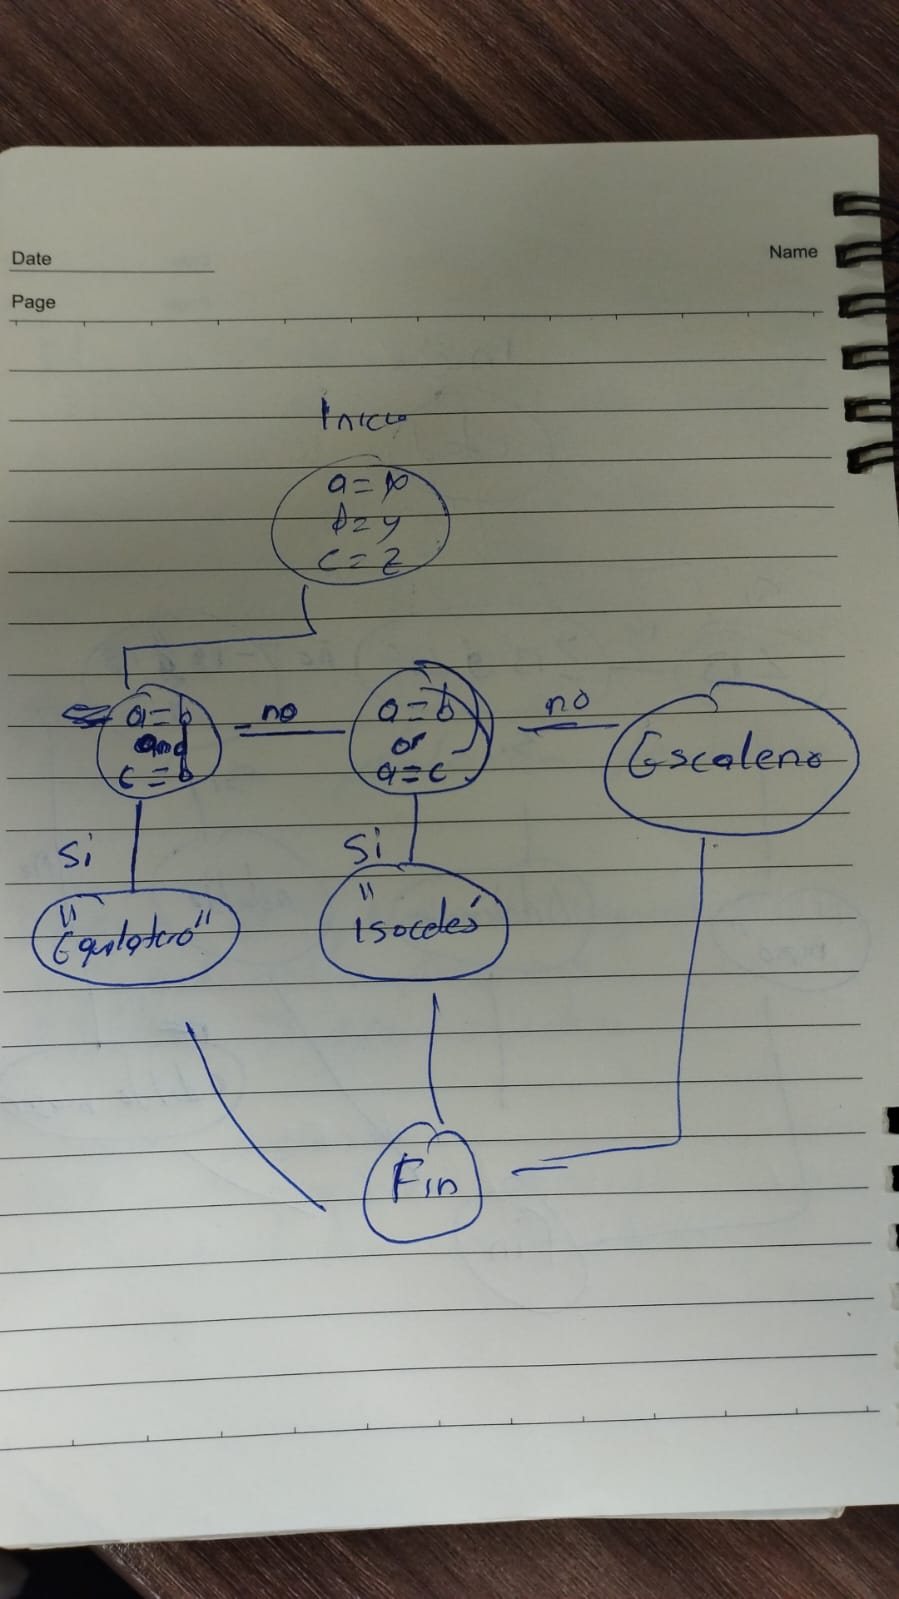 Date
Name
Page
Inicio
a = x
b = y
c = z
a = b
and
c = b
no
a = b
or
a = c
no
Escaleno
Si
Si
"Equilatero"
"Isoceles"
Fin